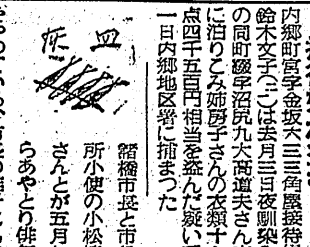 内郷町宮字金坂六三三角屋接待婦
鈴木文子(二〇)は去月三日夜馴染
の同町綴字沼尻九大高道夫さん
に泊りこみ姉房子さんの衣類十
点四千五百円相当を盗んだ疑い
一日内郷地区署に捕まった
皿
灰
諸橋市長と市
所小使の小松
さんとが五月
らあやとり俳